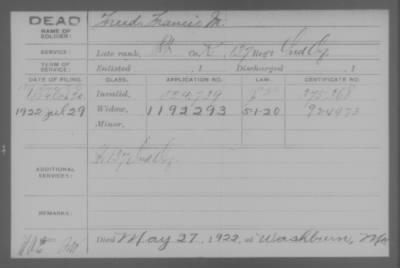 DEAD
NAME OF SOLDIER: Freed, Francis M.
SERVICE: Late rank, Co. K, 127 Reg't Ind Cy.
TERM OF SERVICE: Enlisted , 1 Discharged , 1
DATE OF FILING. CLASS. APPLICATION NO. LAW. CERTIFICATE NO.
Invalid,
1922 Jul 29 Widow, 1192293 5-1-20 924972
Minor,
ADDITIONAL SERVICES: 127 Ind Cy.
REMARKS:
Died May 27, 1922, at Washburn, Mo